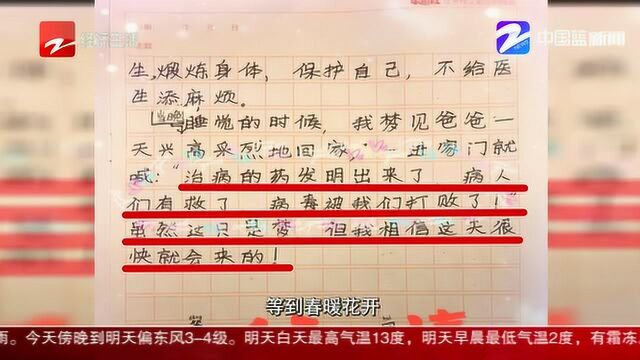 经济生活
中国蓝新闻
生,煅炼身体，保护自己，不给医
生添麻烦。
当晚睡觉的时候，我梦见爸爸一
天兴高采烈地回家，一进家门就
喊："治病的药发明出来了，病人
们有救了，病毒被我们打败了！"
虽然这只是梦，但我相信这天很
快就会来的！
等到春暖花开
雨。今天傍晚到明天偏东风3-4级。明天白天最高气温13度，明天早晨最低气温2度，有霜冻